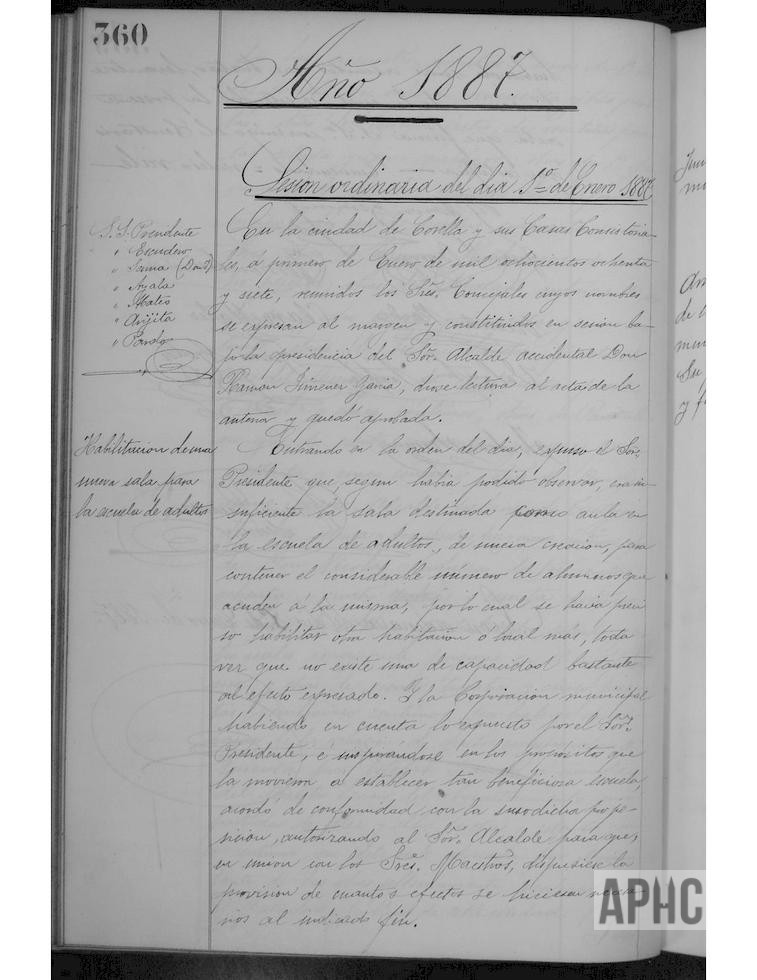 360
Año 1887.
Sesion ordinaria del dia 1º de Enero 1887
S. S. Presidente
" Escudero
" Sama (Don J)
" Ayala
" Mateo
" Arijita
" Pardo
En la ciudad de Corella y sus Casas Consistoria-
les, a primero de Enero de mil ochocientos ochenta
y siete, reunidos los Sres. Concejales cuyos nombres
se expresan al margen y constituidos en sesion ba-
jo la presidencia del Sor. Alcalde accidental Don
Ramon Jimenez Garcia, diose lectura al acta de la
anterior y quedó aprobada.
Habilitacion de una
nueva sala para
la escuela de adultos
Entrando en la orden del dia, expuso el Sor.
Presidente que, segun habia podido observar, era in-
suficiente la sala destinada como aula en
la escuela de adultos, de nueva creacion, para
contener el considerable número de alumnos que
acuden á la misma, por lo cual se hacia preci
so habilitar otra habitacion ó local más, toda
vez que no existe una de capacidad bastante
al efecto expresado. Y la Corporacion municipal
habiendo en cuenta lo expuesto por el Sor.
Presidente, é inspirandose en los propósitos que
la movieron a establecer tan beneficiosa escuela,
acordó de conformidad con la susodicha propo-
sicion, autorizando al Sor. Alcalde para que,
en union con los Sres. Maestros, dispusiese la
provision de cuantos efectos se hiciesen necesa-
rios al indicado fin.
APHC